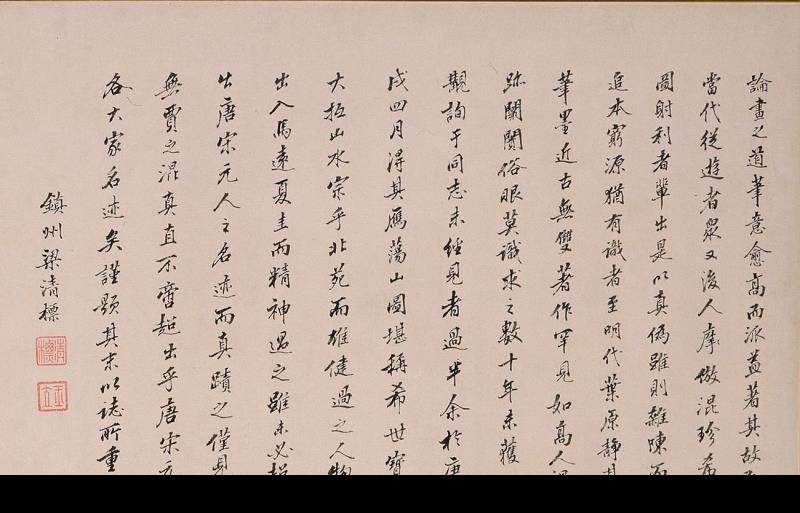 論畫之道筆意愈高而派益著其故
當代從遊者眾又後人摩倣混珍希
圖射利者輩出是以真偽雖則雜陳而
追本窮源猶有識者至明代葉原靜其
筆墨近古無雙著作罕見如高人
跡闌闠俗眼莫識求之數十年未獲
觀詢于同志未經見者過半余於庚
戌四月得其鴈蕩山圖堪稱希世寶
大抵山水宗乎北苑而雄健過之人物
出入馬遠夏圭而精神過之雖未必超
出唐宋元人之名迹而真蹟之僅見
無賈之混真直不啻超出乎唐宋元
各大家名迹矣謹題其末以誌所重
鎮州梁清標
清標